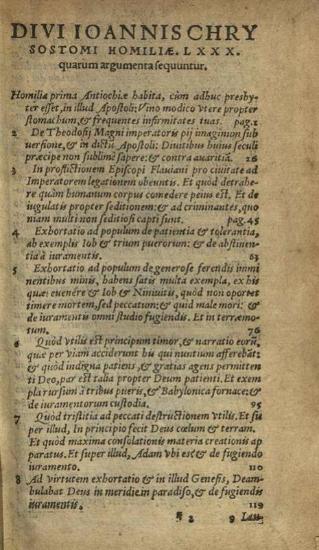 DIVI IOANNIS CHRY
SOSTOMI HOMILIÆ. LXXX.
quarum argumenta sequuntur.
Homiliæ prima Antiochiæ habita, cùm adhuc presby-
ter esset, in illud Apostoli: Vino modico vtere propter
stomachum, & frequentes infirmitates tuas. pag.1
2 De Theodosij Magni imperatoris pij imaginum sub
uersione, & in dictū Apostoli: Diuitibus huius seculi
præcipe non sublimè sapere: & contra auaritiā. 26
3 In profectionem Episcopi Flauiani pro ciuitate ad
Imperatorem legationem obeuntis. Et quòd detrahe-
re quàm humanum corpus comedere peius est. Et de
iugulatis propter seditionem: & ad criminantes, quo
niam multi non seditiosi capti sunt. pag.45
4 Exhortatio ad populum de patientia & tolerantia,
ab exemplis Iob & trium puerorum: & de abstinen-
tia à iuramentis. 63
5 Exhortatio ad populum de generose ferendis immi
nentibus minis, habens satis multa exempla, ex his
quæ euenêre & Iob & Niniuitis, quòd non oportet
timere mortem, sed peccatum: & quid male mori: &
de iuramentis omni studio fugiendis. Et in terræmo-
tum. 76
6 Quòd vtilis est principum timor, & narratio eorū,
quæ per viam acciderunt his qui nuntium afferebāt:
& quòd indigna patiens, & gratias agens permitten
ti Deo, par est talia propter Deum patienti. Et exem
pla rursum à tribus pueris, & Babylonica fornace: &
de iuramentorum custodia. 95
7 Quòd tristitia ad peccati destructionem vtilis. Et su
per illud, In principio fecit Deus cœlum & terram.
Et quòd maxima consolationis materia creationis ap
paratus. Et super illud, Adam vbi es: & de fugiendo
iuramento. 110
8 Ad virtutem exhortatio & in illud Genesis, Deam-
bulabat Deus in meridie in paradiso, & de fugiendis
iuramentis. 119
2 9 Lau-